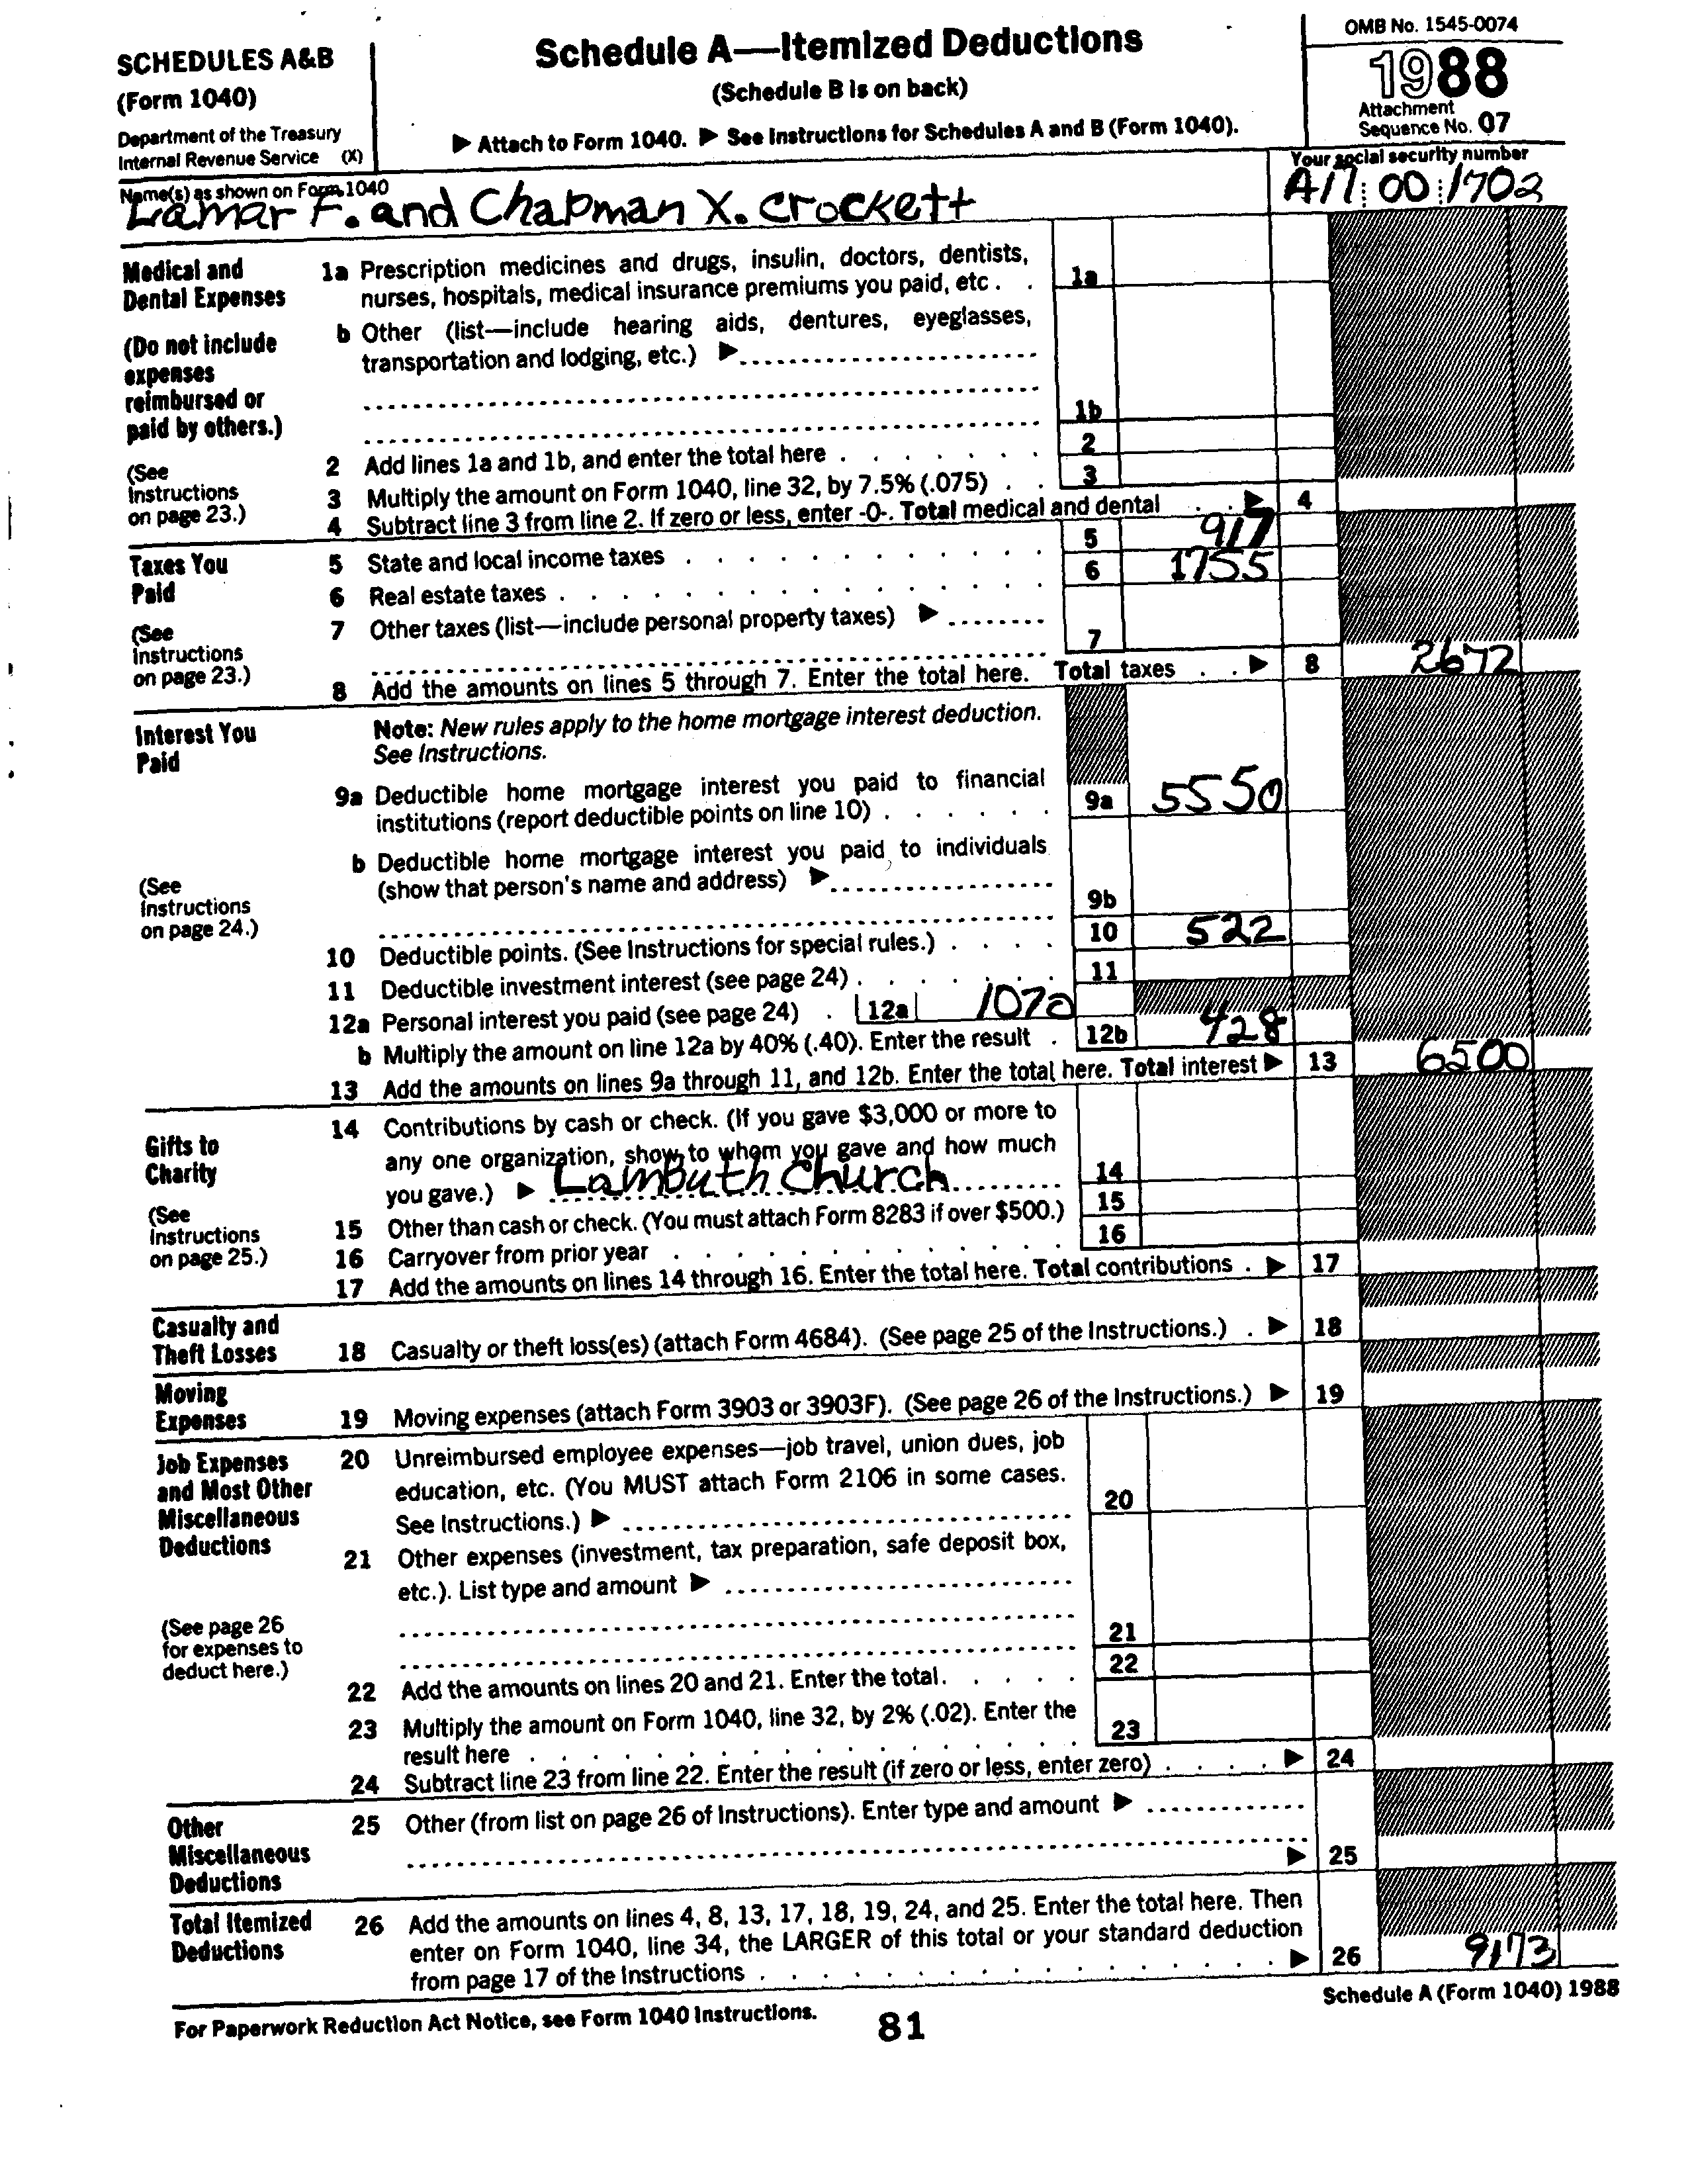 SCHEDULES A&B
(Form 1040)
Department of the Treasury
Internal Revenue Service (X)
Schedule A—Itemized Deductions
(Schedule B is on back)
▶ Attach to Form 1040. ▶ See Instructions for Schedules A and B (Form 1040).
OMB No. 1545-0074
1988
Attachment
Sequence No. 07
Name(s) as shown on Form 1040
Lamar F. and Chapman X. Crockett
Your social security number
A17 : 00 : 1702
Medical and
Dental Expenses
(Do not include
expenses
reimbursed or
paid by others.)
(See
Instructions
on page 23.)
1a Prescription medicines and drugs, insulin, doctors, dentists,
nurses, hospitals, medical insurance premiums you paid, etc . . 1a
b Other (list—include hearing aids, dentures, eyeglasses,
transportation and lodging, etc.) ▶
1b
2 Add lines 1a and 1b, and enter the total here . . . . . . . 2
3 Multiply the amount on Form 1040, line 32, by 7.5% (.075) . . 3
4 Subtract line 3 from line 2. If zero or less, enter -0-. Total medical and dental . . ▶ 4
Taxes You
Paid
(See
Instructions
on page 23.)
5 State and local income taxes . . . . . . . . . . . 5 917
6 Real estate taxes . . . . . . . . . . . . . . . 6 1755
7 Other taxes (list—include personal property taxes) ▶
7
8 Add the amounts on lines 5 through 7. Enter the total here. Total taxes . . ▶ 8 2672
Interest You
Paid
(See
Instructions
on page 24.)
Note: New rules apply to the home mortgage interest deduction.
See Instructions.
9a Deductible home mortgage interest you paid to financial
institutions (report deductible points on line 10) . . . . . . 9a 5550
b Deductible home mortgage interest you paid to individuals
(show that person's name and address) ▶
9b
10 Deductible points. (See Instructions for special rules.) . . . . 10 522
11 Deductible investment interest (see page 24) . . . . . . . 11
12a Personal interest you paid (see page 24) . 12a 1070
b Multiply the amount on line 12a by 40% (.40). Enter the result . 12b 428
13 Add the amounts on lines 9a through 11, and 12b. Enter the total here. Total interest ▶ 13 6500
Gifts to
Charity
(See
Instructions
on page 25.)
14 Contributions by cash or check. (If you gave $3,000 or more to
any one organization, show to whom you gave and how much
you gave.) ▶ Lambuth Church 14
15 Other than cash or check. (You must attach Form 8283 if over $500.) 15
16 Carryover from prior year . . . . . . . . . . . . . 16
17 Add the amounts on lines 14 through 16. Enter the total here. Total contributions . ▶ 17
Casualty and
Theft Losses
18 Casualty or theft loss(es) (attach Form 4684). (See page 25 of the Instructions.) . ▶ 18
Moving
Expenses
19 Moving expenses (attach Form 3903 or 3903F). (See page 26 of the Instructions.) ▶ 19
Job Expenses
and Most Other
Miscellaneous
Deductions
(See page 26
for expenses to
deduct here.)
20 Unreimbursed employee expenses—job travel, union dues, job
education, etc. (You MUST attach Form 2106 in some cases.
See Instructions.) ▶ 20
21 Other expenses (investment, tax preparation, safe deposit box,
etc.). List type and amount ▶
21
22 Add the amounts on lines 20 and 21. Enter the total. . . . . 22
23 Multiply the amount on Form 1040, line 32, by 2% (.02). Enter the
result here . . . . . . . . . . . . . . . . . 23
24 Subtract line 23 from line 22. Enter the result (if zero or less, enter zero) . . . . ▶ 24
Other
Miscellaneous
Deductions
25 Other (from list on page 26 of Instructions). Enter type and amount ▶
▶ 25
Total Itemized
Deductions
26 Add the amounts on lines 4, 8, 13, 17, 18, 19, 24, and 25. Enter the total here. Then
enter on Form 1040, line 34, the LARGER of this total or your standard deduction
from page 17 of the Instructions . . . . . . . . . . . . . . . . ▶ 26 9173
For Paperwork Reduction Act Notice, see Form 1040 Instructions.
81
Schedule A (Form 1040) 1988